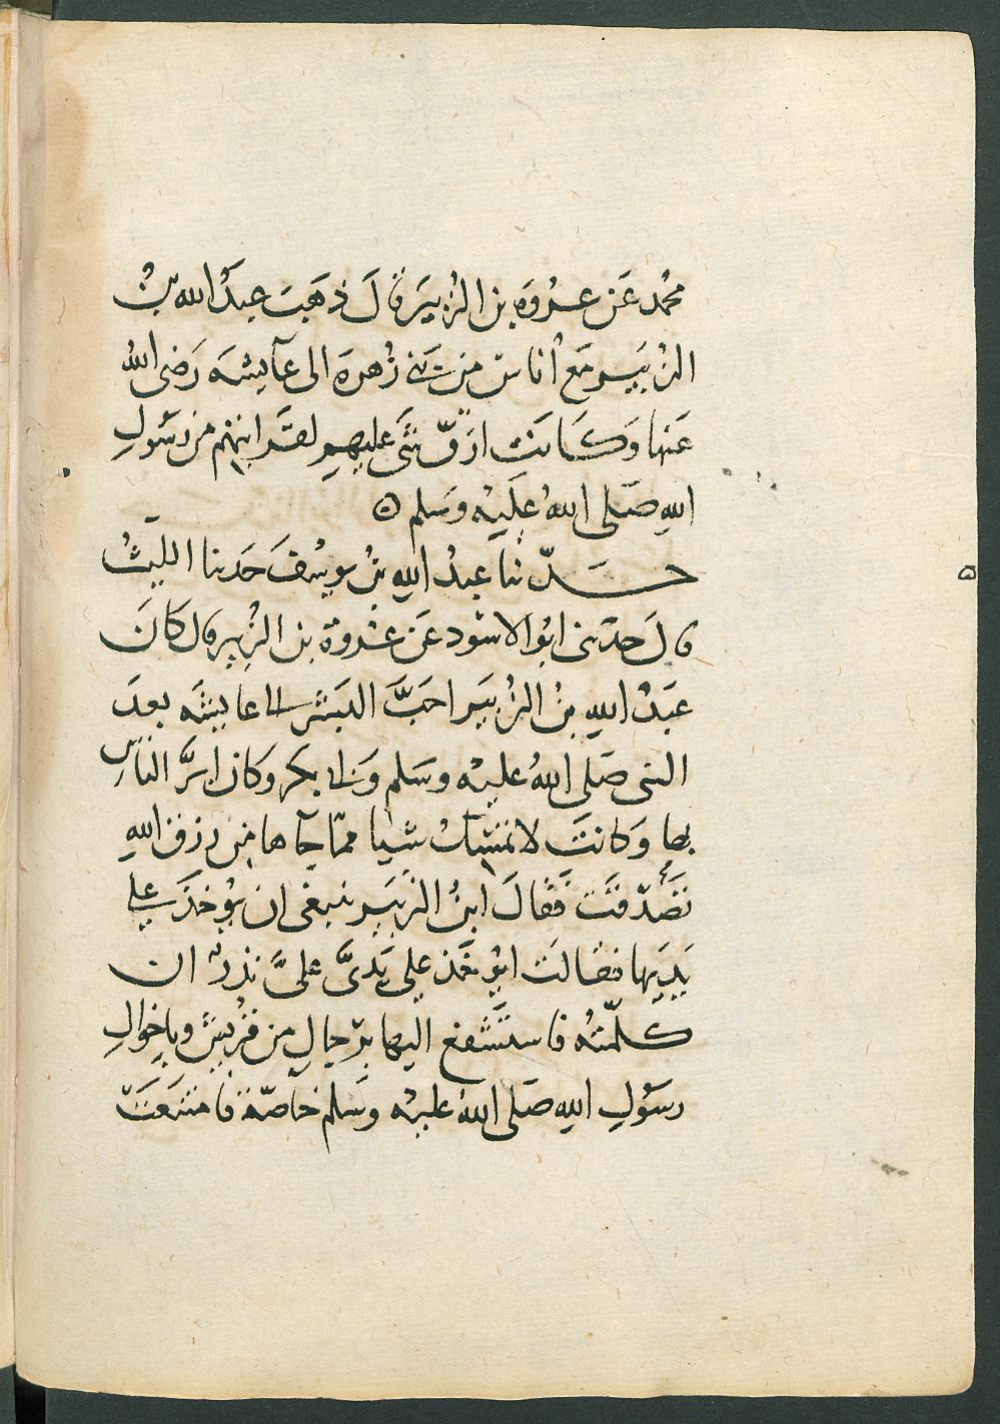 محمد عَن عُروَة بن الزُّبيَر قالَ ذهَبَ عبدُ الله بنُ
الزُّبَيرِ مَعَ أُناسٍ من بَنى زُهرةَ الى عآيشَه رَضى اللهُ
عَنها وَكانَت ارَقَّ شَىٍ عليهِم لقَرابتهم من رسُولِ
اللهِ صَلى اللهُ عليَه وسَلم ۞
حَــدّثنا عبدُ اللهِ بنُ يوسُفَ حَدثنا الليثُ
قالَ حدثنى ابوُ الاسوَد عَن عُروة بن الزبير قال كانَ
عَبدُ اللهِ بنُ الزُّبَيرِ احَبَّ البَشَر الى عايشَه بعدَ
النبى صَلى اللهُ عليهْ وسَلم وَابى بكر وكان ابرَّ الناسِ
بها وَكانَت لا تمسِكُ شيا ممّا جآها من رزق اللهِ
تصَدّقَت فَقالَ ابنُ الزُّبَير ينبغى ان يُوخذَ على
يَديَها فقالَت ايوُخَذ على يَدىَّ علىَّ نذرٌ ان
كلّمتُه فاستَشفع اليها برجالٍ من قُريشٍ وباخوالِ
رسُولِ اللهِ صَلى اللهُ عليهْ وسَلم خاصّةً فامتَنعَت